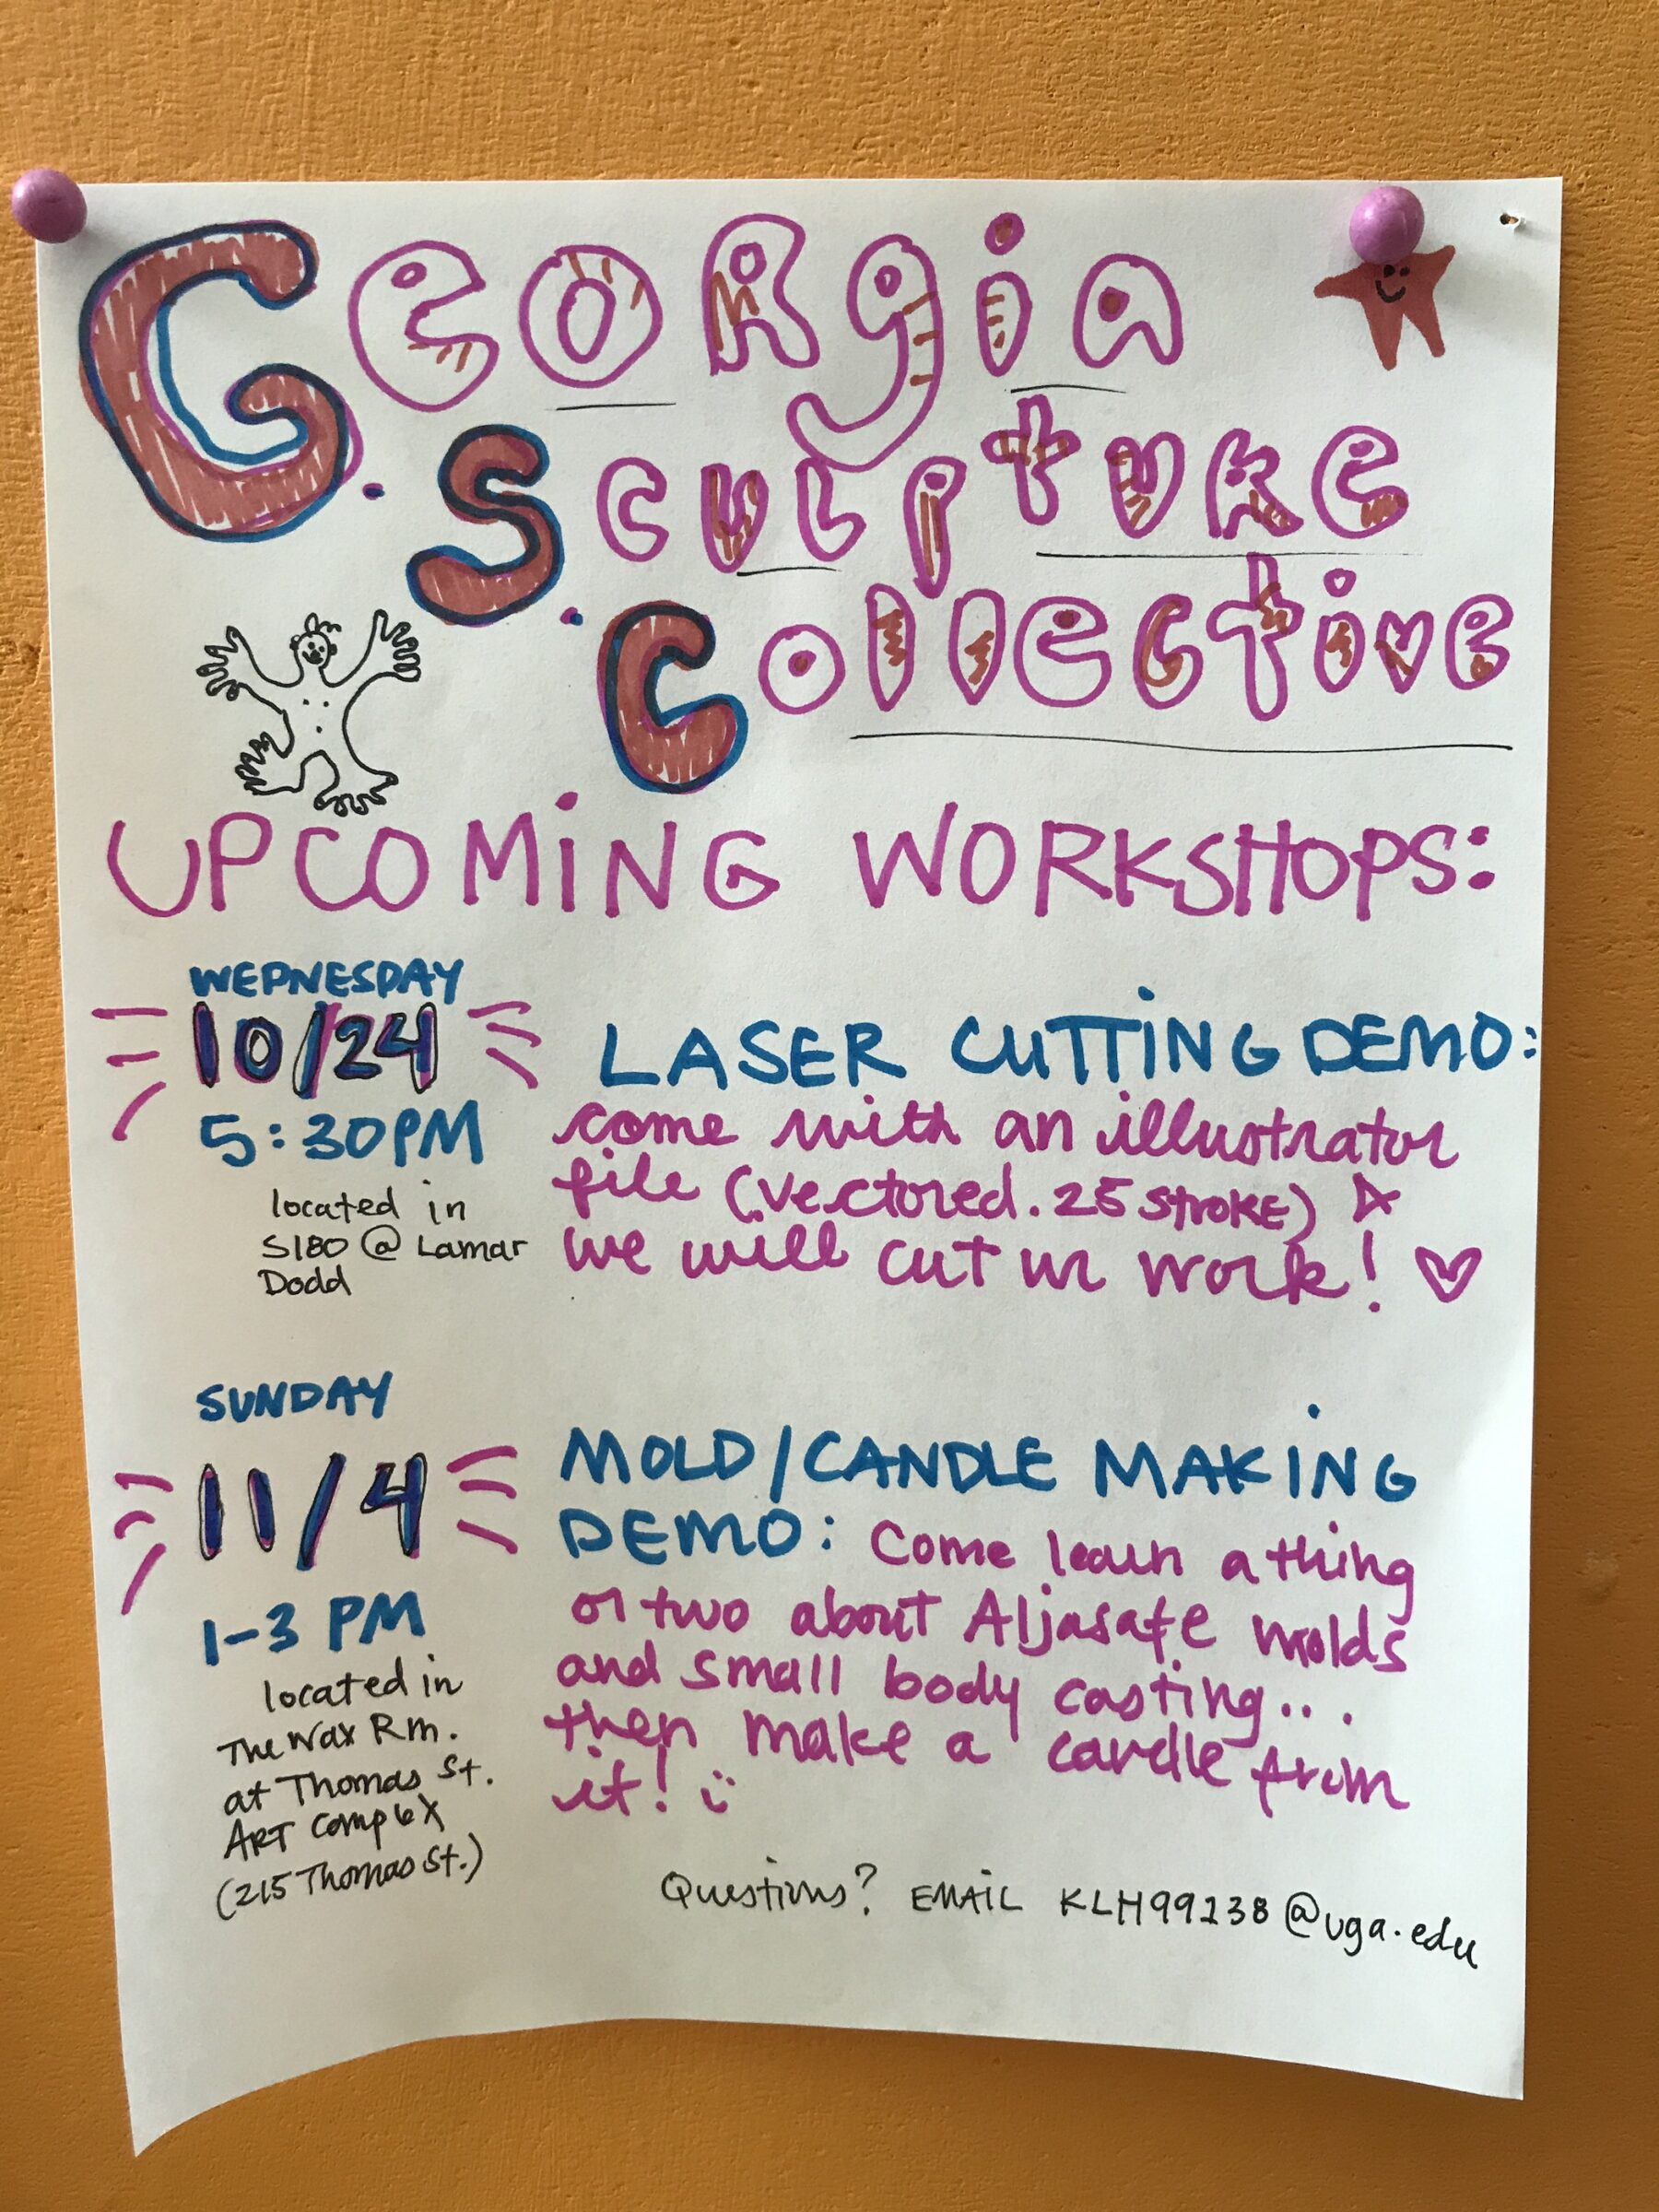 Georgia
Sculpture
Collective
UPCOMING WORKSHOPS:
WEDNESDAY
10/24
5:30PM
located in
S180 @ Lamar
Dodd
LASER CUTTING DEMO:
come with an illustrator
file (vectored .25 stroke) &
we will cut ur work!
SUNDAY
11/4
1-3 PM
located in
The Wax Rm.
at Thomas St.
ART Complex
(215 Thomas St.)
MOLD/CANDLE MAKING
DEMO: Come learn a thing
or two about Aljasate molds
and small body casting...
then make a candle from
it!
Questions? EMAIL KLH99238@uga.edu